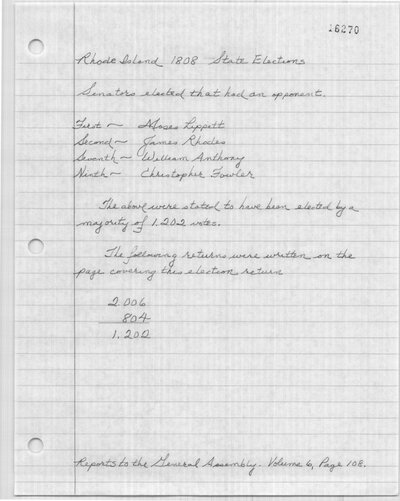 16270
Rhode Island 1808 State Elections
Senators elected that had an opponent.
First ~ Moses Lippitt
Second ~ James Rhodes
Seventh ~ William Anthony
Ninth ~ Christopher Fowler
The above were stated to have been elected by a
majority of 1,202 votes.
The following returns were written on the
page covering this election return
2.006
804
1.202
Reports to the General Assembly. Volume 6, Page 108.